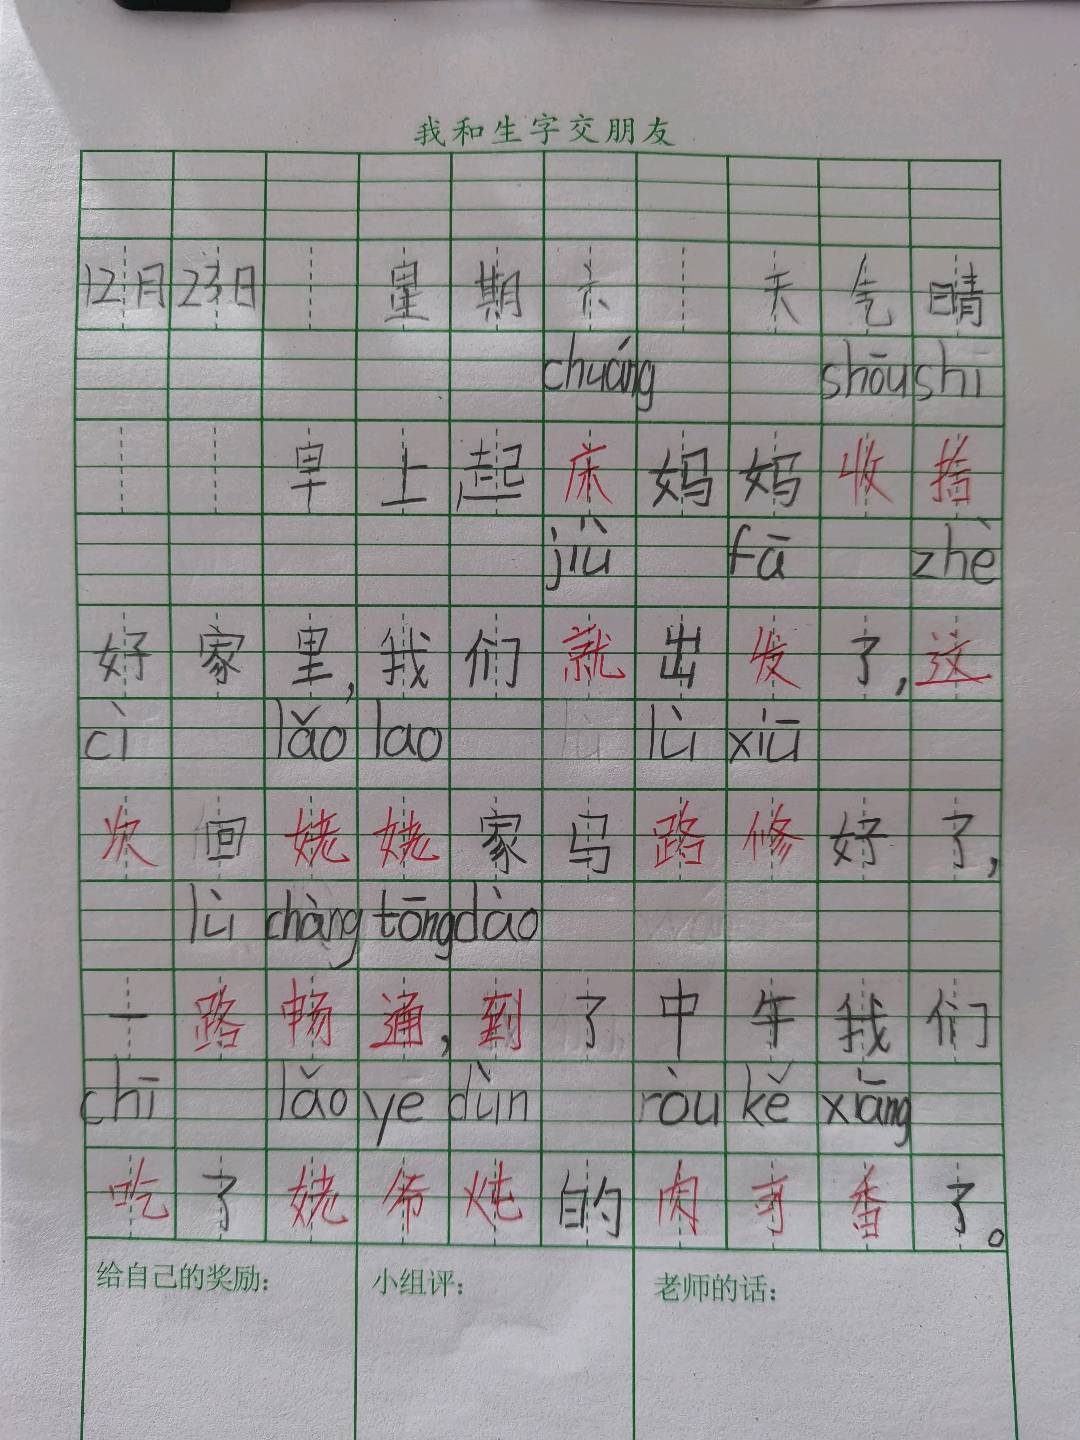 我和生字交朋友
12月23日 星期六 天气晴
chuáng shōu shī
早上起床妈妈收拾
jiù fā zhè
好家里,我们就出发了,这
cì lǎo lao lù xiū
次回姥姥家马路修好了,
lù chàng tōng dào
一路畅通,到了中午我们
chī lǎo ye dùn ròu kě xiāng
吃了姥爷炖的肉可香了。
给自己的奖励: 小组评: 老师的话: